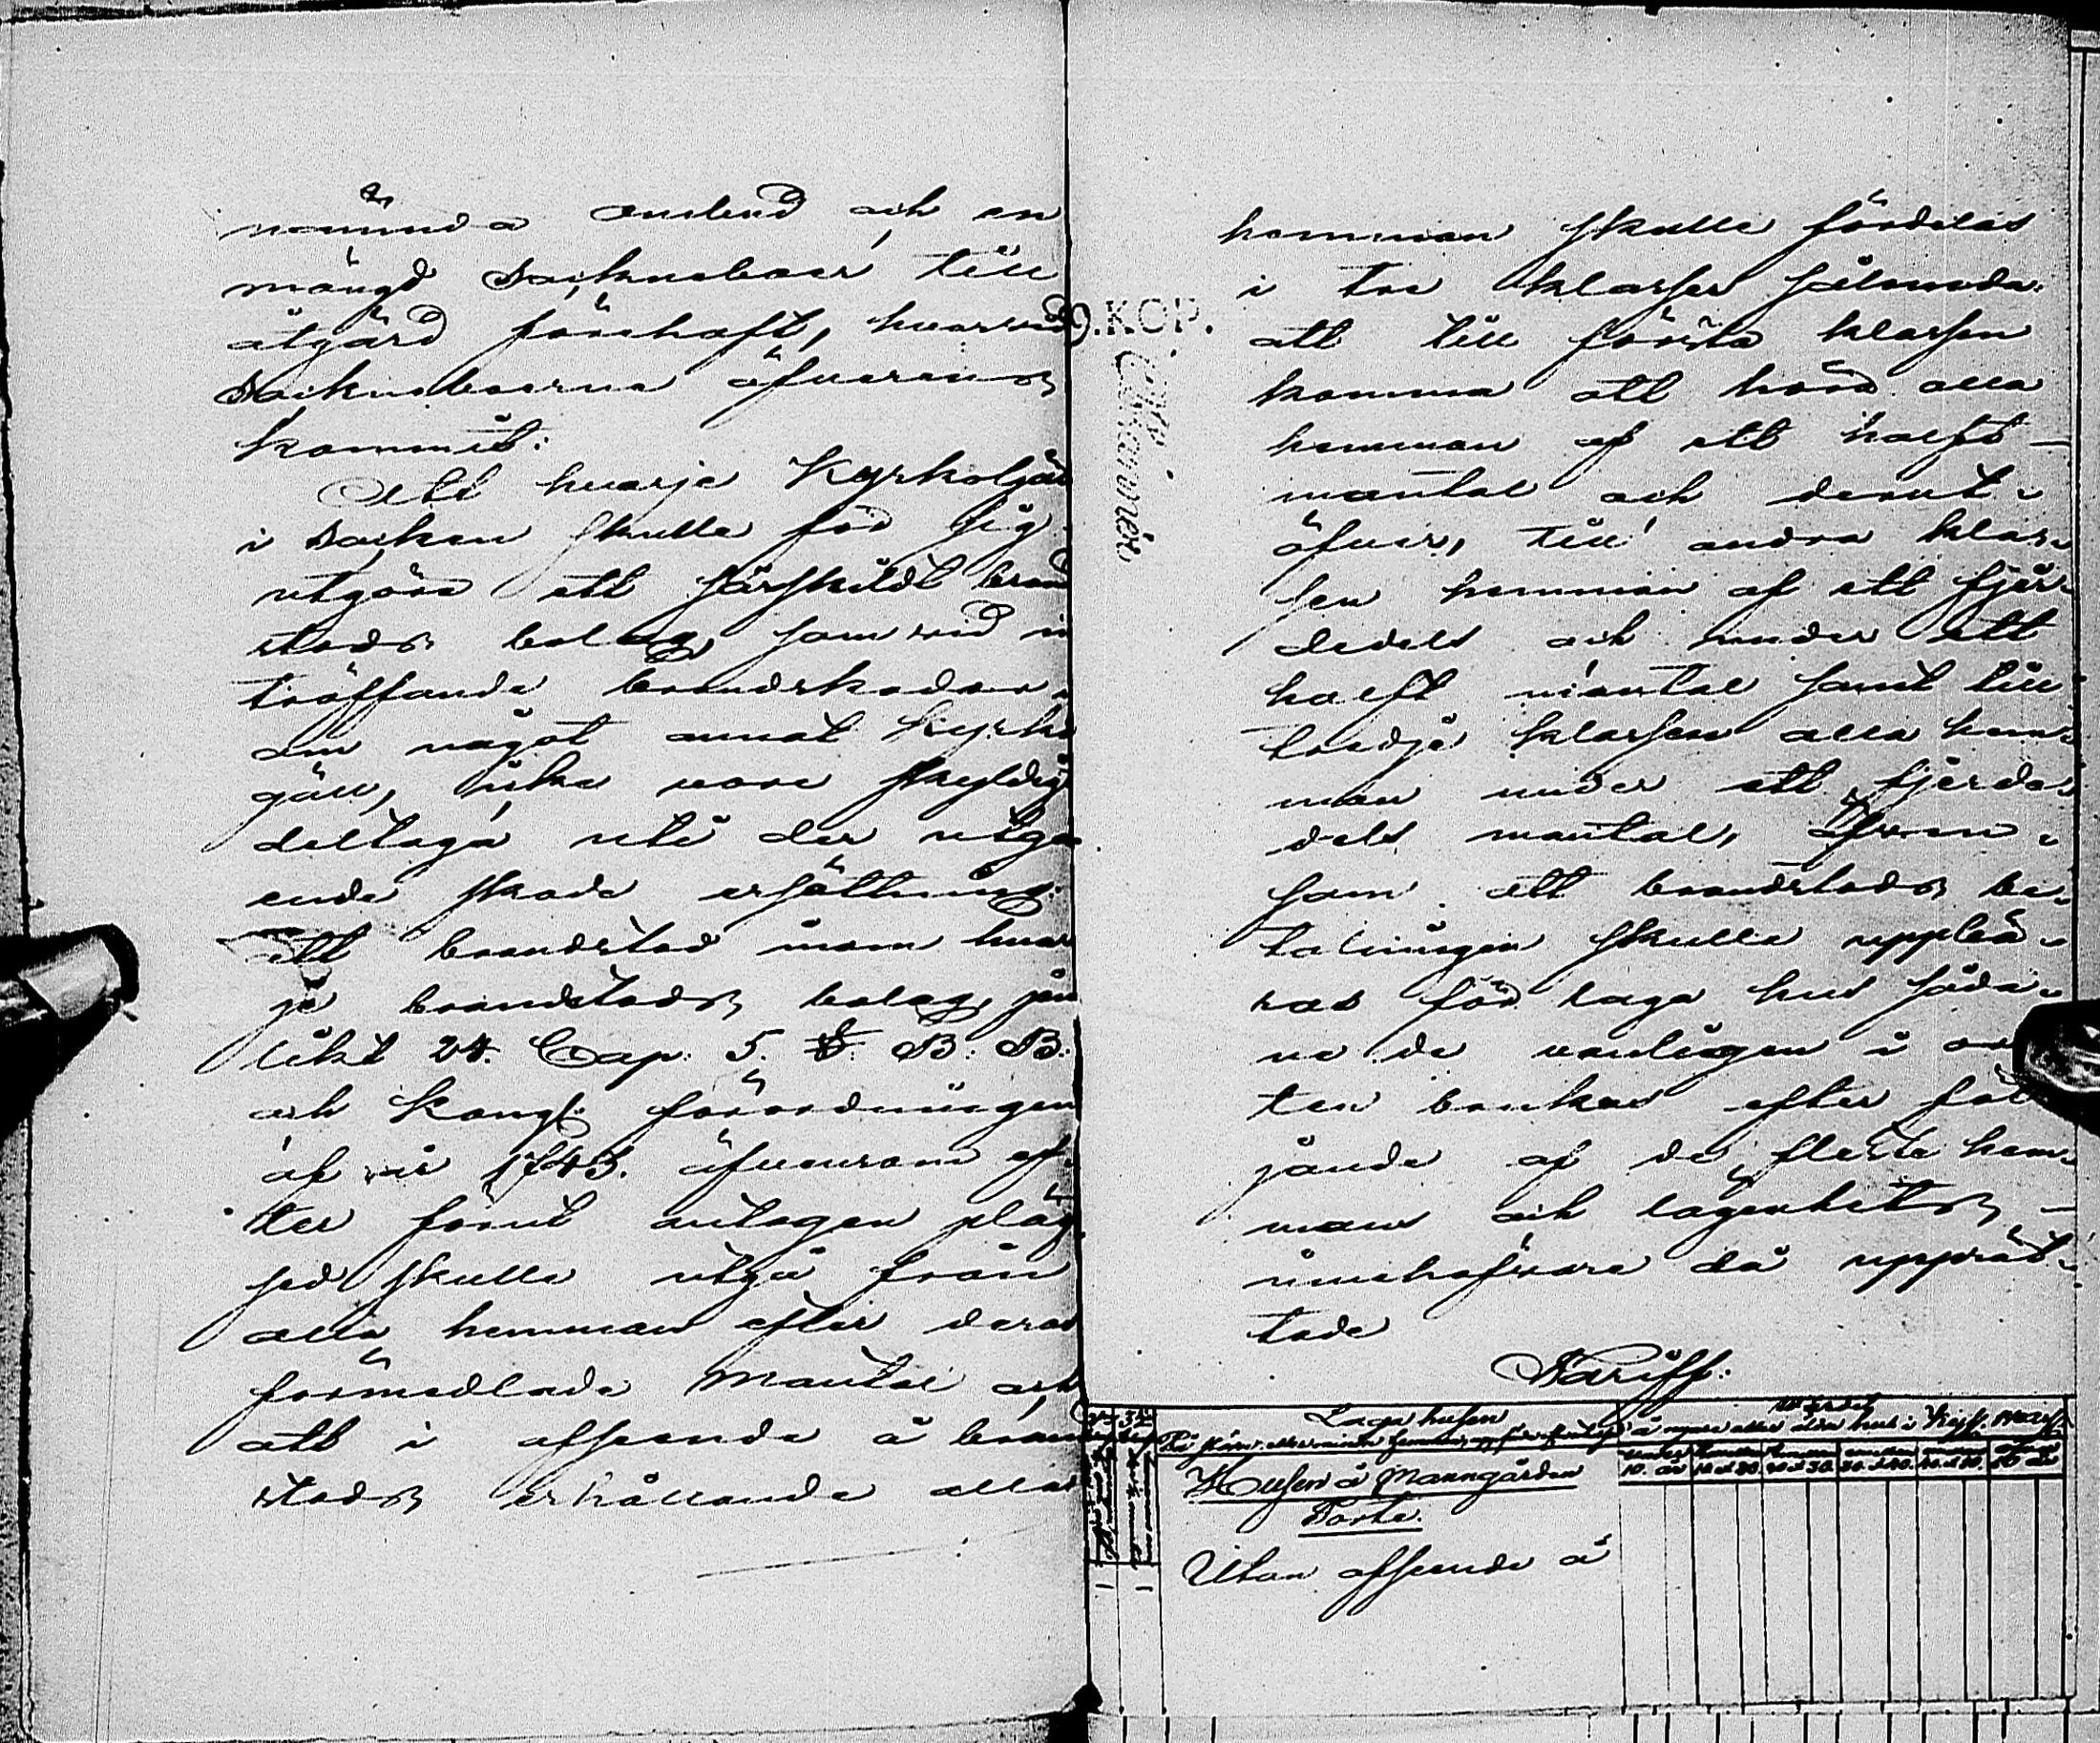 nämnda ombud och en
mängd Sockneboer till
åtgärd förehaft, hvarvid
Socknebоerne öfverens
kommit:
Att hvarje Kyrkogäll
i Socken skulle för sig
utgöra ett särskildt brand
stods bolag, som vid in
träffande brandskador
om något annat Kyrko
gäll, icke vore skyldig
deltaga uti der utgå
ende skade ersättning:
att brandstod inom hvar
je brandstods bolag, jem
likt 24. Cap: 5. §: B: B:
och Kongl: förordningen
af år 1743. äfvensom ef-
ter förut antagen pläg
sed skulle utgå från
alla hemman efter deras
förmedlade Mantal och
att i afseende å brand
stods erhållande alla
hemman skulle fördelas
i tre klasser sålunda:
att till första klassen
komma att höra alla
hemman af ett halft
mantal och derut-
öfver, till andra klas-
sen hemman af ett fjer-
dedels och under ett
halft mantal samt till
tredje klassen alla hem-
man under ett fjerde-
dels mantal, Äfven-
som att brandstods be-
talningen skulle uppbä-
ras för laga hus såda-
ne de vanligen i or
ten brukas efter föl
jande af de fleste hem-
mans och lägenhets
innehafvare då upprät-
tade
Tariff:
9.KOP.
Laga husen
Värdet
å nyare eller äldre hus i
under 10. år
Husen å Manngården
Torta.
Utan afseende å
1 1